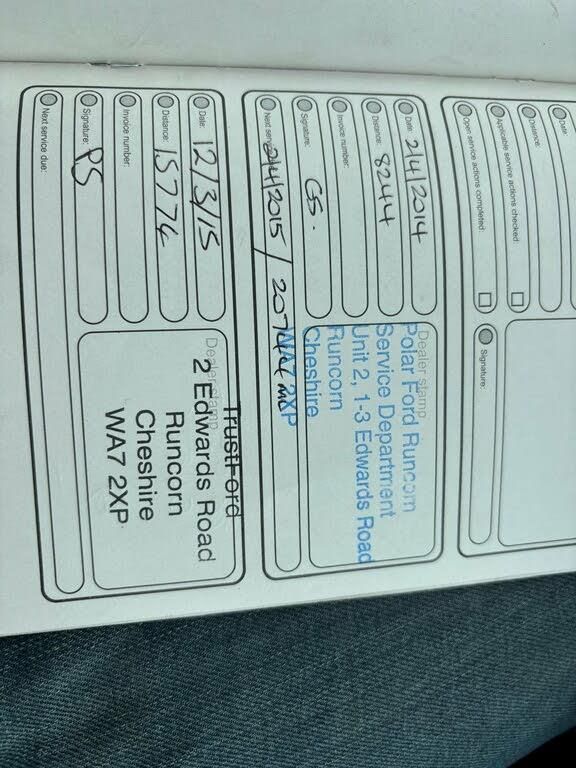 Date:
Distance:
Applicable service actions checked:
Open service actions completed:
Signature:
Date: 2/4/2014
Distance: 8244
Invoice number:
Signature: GS.
Next 2/4/2015 /
Dealer stamp
Polar Ford Runcorn
Service Department
Unit 2, 1-3 Edwards Road
Runcorn
Cheshire
WA7 2XP
Date: 12/3/15
Distance: 15774
Invoice number:
Signature: PS
Next service due:
Dealer stamp
TrustFord
2 Edwards Road
Runcorn
Cheshire
WA7 2XP